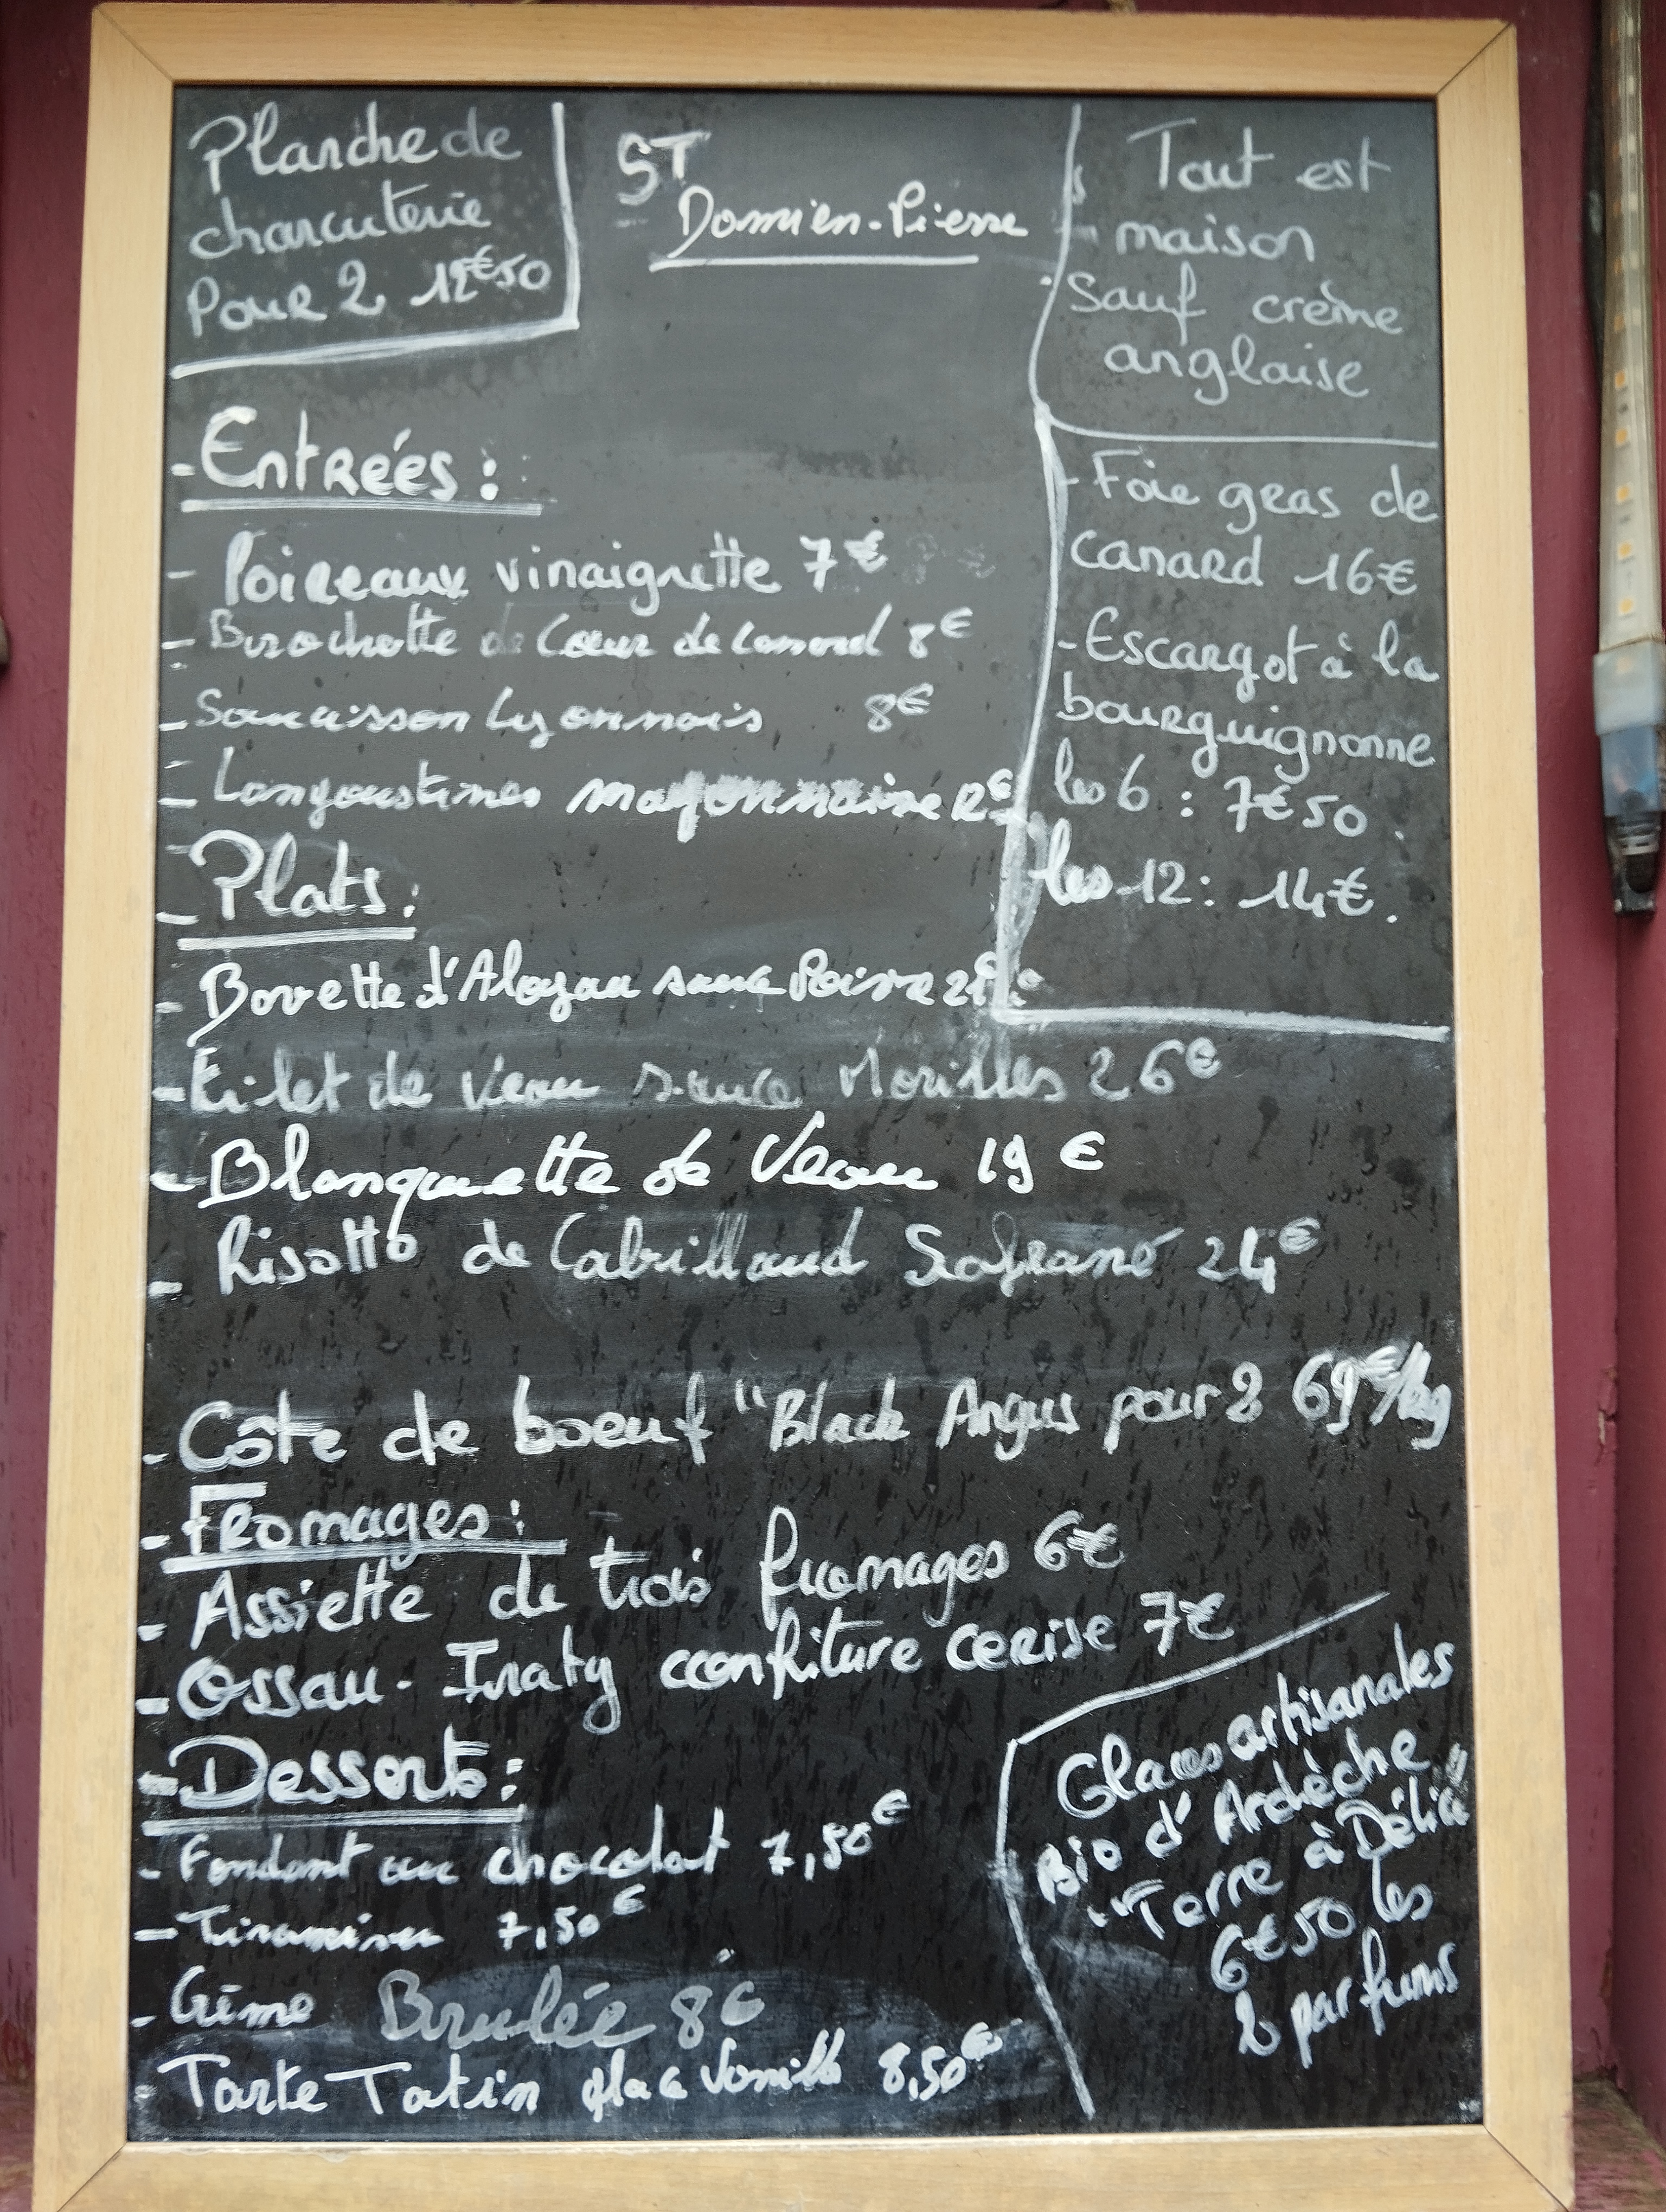 Planche de
charcuterie
Pour 2 12€50
ST
Damien-Pierre
Tout est
maison
Sauf crème
anglaise
- Entrées :
- Poireaux vinaigrette 7€
- Brochette de Cœur de canard 8€
- Saucisson Lyonnais 8€
- Langoustines mayonnaise 12€
- Foie gras de
canard 16€
- Escargot à la
bourguignonne
les 6 : 7€50.
les 12 : 14€.
- Plats :
- Bavette d'Aloyau sauce Poivre
- Filet de Veau sauce Morilles 26€
- Blanquette de Veau 19€
- Risotto de Cabillaud Safrané 24€
- Côte de boeuf "Black Angus pour 2 69€/kg
- Fromages :
- Assiette de trois fromages 6€
- Ossau-Iraty confiture cerise 7€
- Desserts :
- Fondant au chocolat 7,50€
- Tiramisu 7,50€
- Crème Brulée 8€
- Tarte Tatin glace Vanille 8,50€
Glaces artisanales
Bio d'Ardèche
"Terre à Délice"
6€50 les
2 parfums